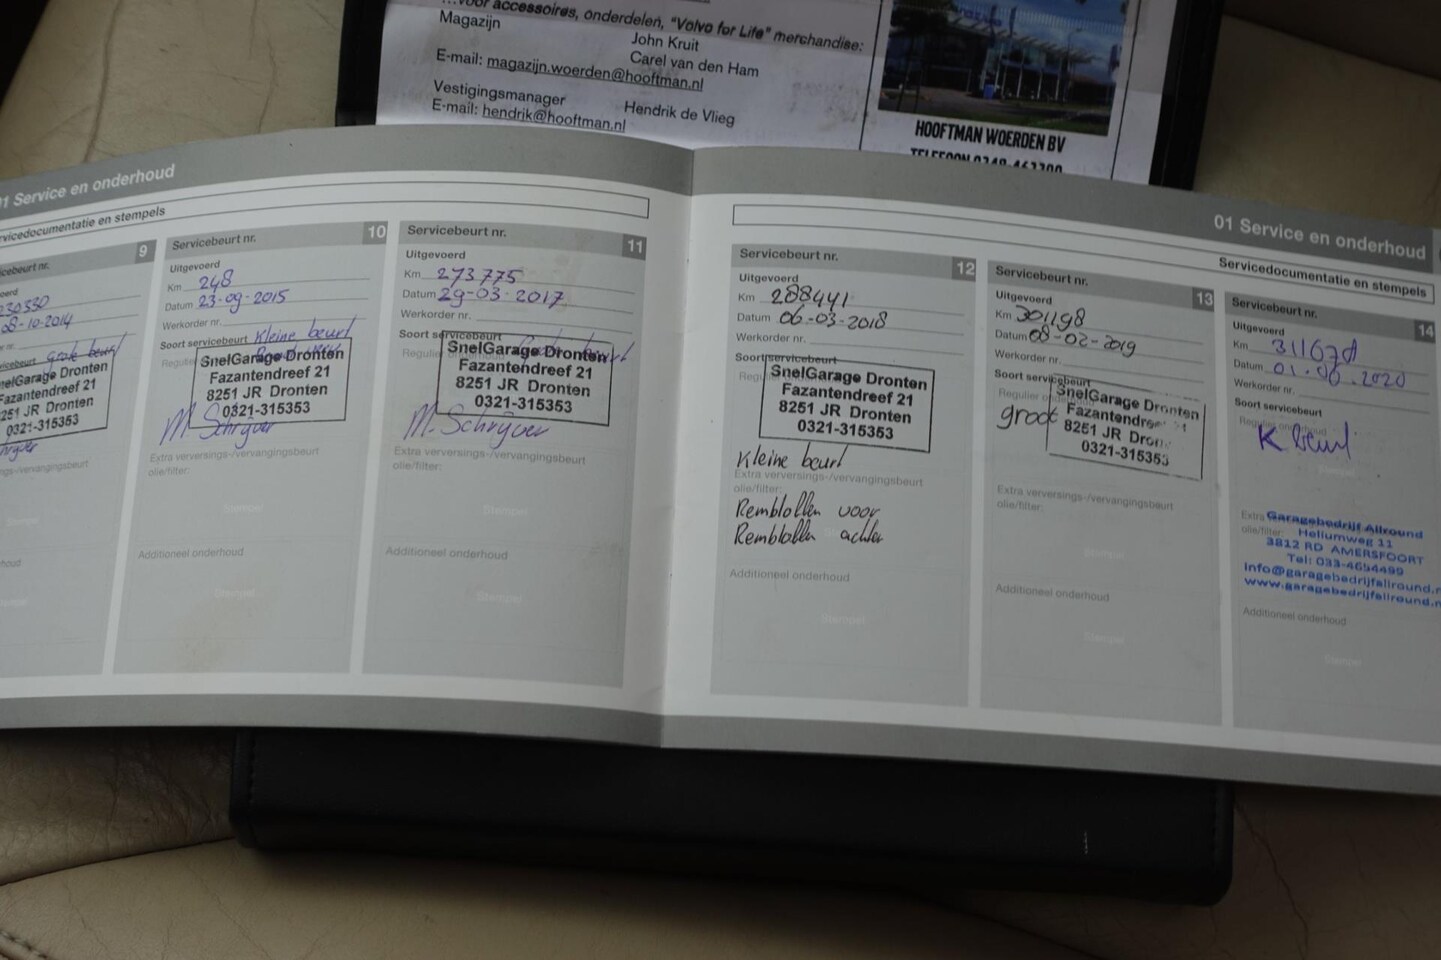 ...voor accessoires, onderdelen, "Volvo for Life" merchandise:
Magazijn
John Kruit
Carel van den Ham
E-mail: magazijn.woerden@hooftman.nl
Vestigingsmanager Hendrik de Vlieg
E-mail: hendrik@hooftman.nl
HOOFTMAN WOERDEN BV
TELEFOON 0348-463300
01 Service en onderhoud
Servicedocumentatie en stempels
9
Servicebeurt nr.
230330
08-10-2014
Grote beurt
SnelGarage Dronten
Fazantendreef 21
8251 JR Dronten
0321-315353
10
Servicebeurt nr.
Uitgevoerd
Km 248
Datum 23-09-2015
Werkorder nr.
Soort servicebeurt Kleine beurt
SnelGarage Dronten
Fazantendreef 21
8251 JR Dronten
0321-315353
M Schrijver
Extra verversings-/vervangingsbeurt
olie/filter:
Stempel
Additioneel onderhoud
Stempel
11
Servicebeurt nr.
Uitgevoerd
Km 273775
Datum 29-03-2017
Werkorder nr.
Soort servicebeurt
Regulier Grote beurt
SnelGarage Dronten
Fazantendreef 21
8251 JR Dronten
0321-315353
M. Schrijver
Extra verversings-/vervangingsbeurt
olie/filter:
Stempel
Additioneel onderhoud
Stempel
01 Service en onderhoud
Servicedocumentatie en stempels
12
Servicebeurt nr.
Uitgevoerd
Km 288441
Datum 06-03-2018
Werkorder nr.
Soort servicebeurt
SnelGarage Dronten
Fazantendreef 21
8251 JR Dronten
0321-315353
Kleine beurt
Extra verversings-/vervangingsbeurt
olie/filter:
Remblokken voor
Remblokken achter
Additioneel onderhoud
Stempel
13
Servicebeurt nr.
Uitgevoerd
Km 301198
Datum 08-02-2019
Werkorder nr.
Soort servicebeurt
Regulier onderhoud
groot
SnelGarage Dronten
Fazantendreef 21
8251 JR Dron
0321-315353
Extra verversings-/vervangingsbeurt
olie/filter:
Stempel
Additioneel onderhoud
Stempel
14
Servicebeurt nr.
Uitgevoerd
Km 311670
Datum 01.06.2020
Werkorder nr.
Soort servicebeurt
Regulier onderhoud
K Beurt
Stempel
Extra
olie/filter:
Garagebedrijf Allround
Heliumweg 11
3812 RD AMERSFOORT
Tel: 033-4694499
info@garagebedrijfallround.n
www.garagebedrijfallround.n
Additioneel onderhoud
Stempel